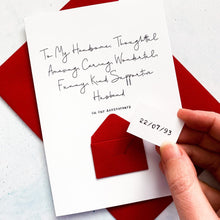 To My Handsome, Thoughtful
Amazing Caring Wonderful
Funny Kind Supportive
Husband
22/07/93